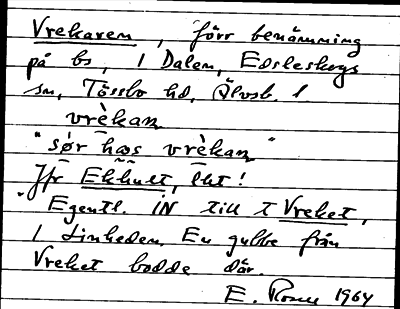 Vrekaren, förr benämning
på bs, i Dalen, Edsleskogs
sn, Tössbo hd, Älvsb. l
vrèkaṉ
"sør hæs vrèkaṉ"
Jfr Ekhult, lht!
"Egentl. iN till t Vreket,
i Linheden. En gubbe från
Vreket bodde där.
E. 1964